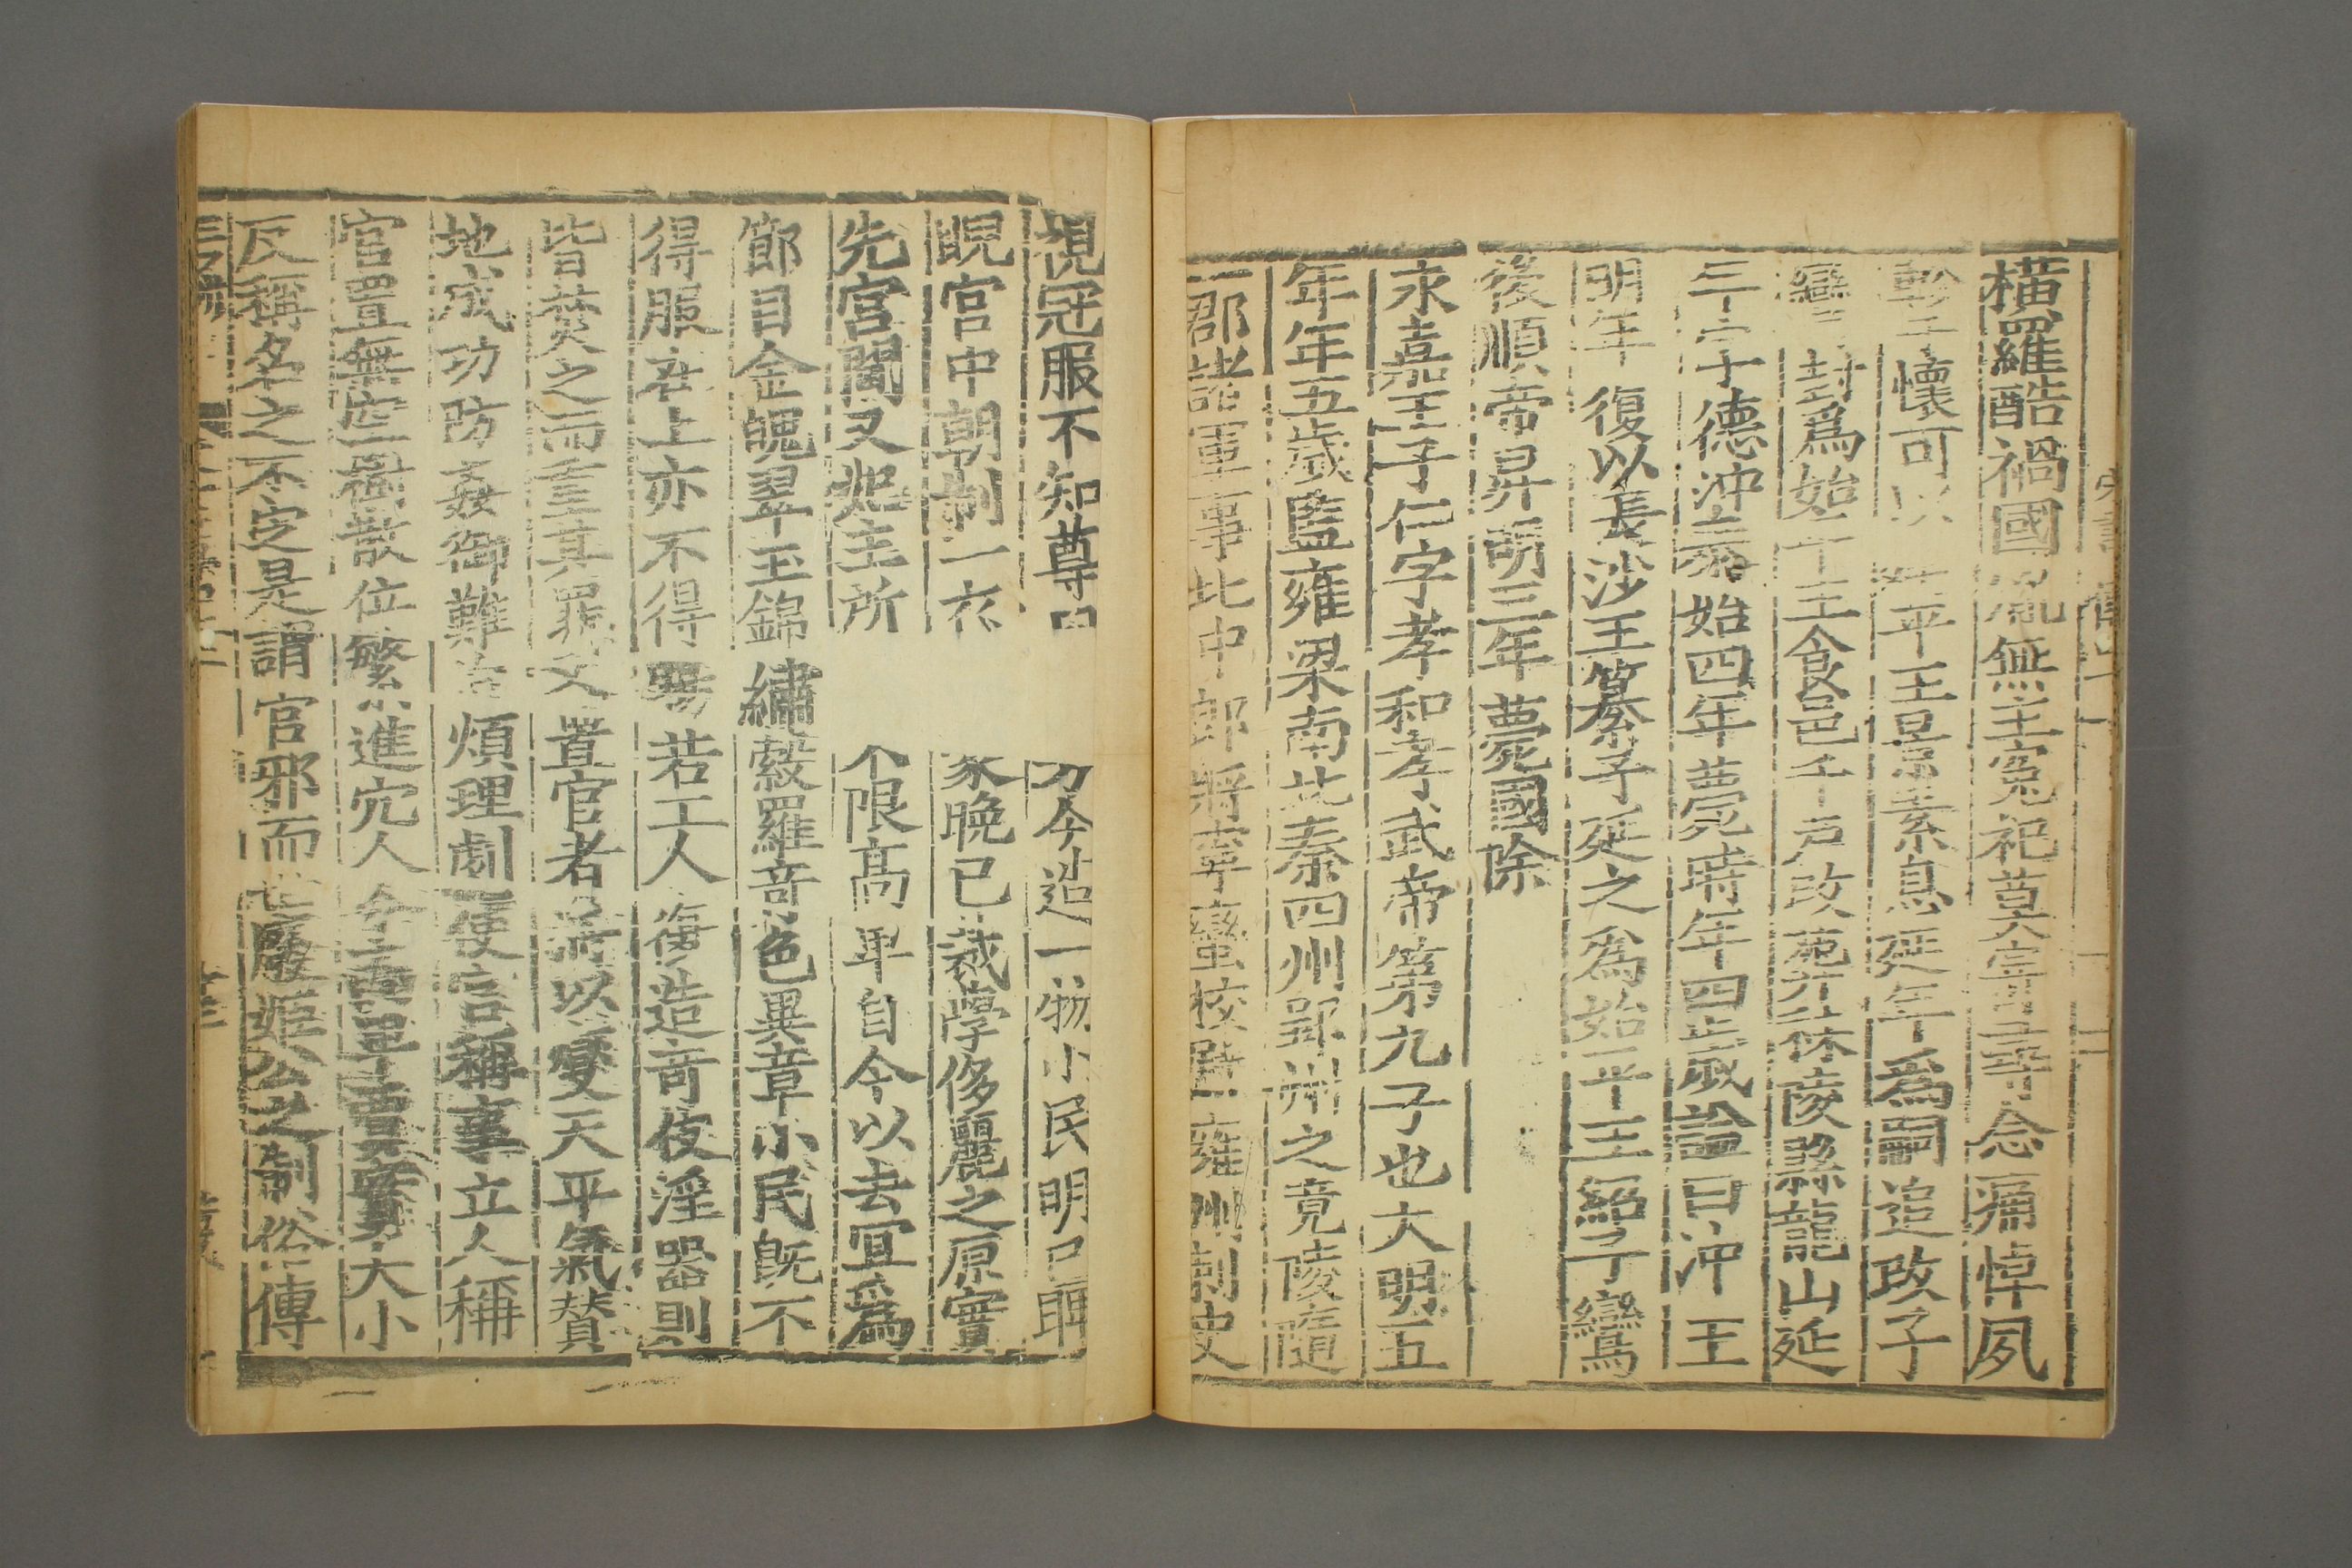 橫羅酷禍國亂無主冤祀莫寄尋念痛悼夙
軫于懷可以 平王景素息延年爲嗣追改子
鸞封爲始平王食邑千户改葬秣陵縣龍山延
年字德沖泰始四年薨時年四歲諡曰沖王
明年復以長沙王纂子延之爲始平王紹子鸞
後順帝昇明三年薨國除
永嘉王子仁字孝和孝武帝第九子也大明五
年年五歲監雍梁南北秦四州郢州之竟陵隨
二郡諸軍事北中郎將寧蠻校尉雍州刺史
視冠服不知尊 方今造一物小民明已睥
睨宮中朝制一衣 家晚已裁學侈麗之原實
先宮閫又妃主所 不限高卑自今以去宜爲
節目金魄翠玉錦繡縠羅奇色異章小民旣不
得服在上亦不得賜若工人復造奇伎淫器則
皆焚之而重其罪又置官者將以變天平氣贊
地成功防姦御難治煩理劇使官稱事立人稱
官置無空樹散位繁進冗人今 大小
反稱名之不定是謂官邪而世廢姬公之制俗傳